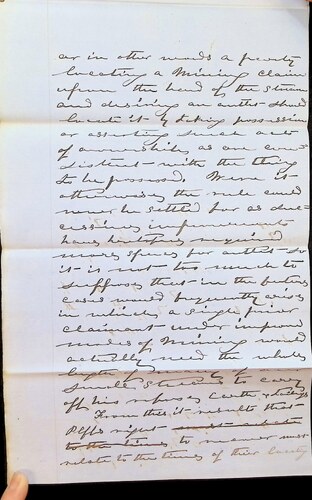 or in other words a party
locating a Mining Claim
upon the head of the stream
and desiring an outlet should
locate it by taking possession
or asserting such acts
of ownership as are con-
sistent with the thing
to be possessed. Were it
otherwise the rule could
never be settled for as suc-
cessive improvements
have heretofore required
more space for outlet so
it is not too much to
suppose that in the future
cases would frequently arise
in which a single prior
claimant under improved
modes of Mining would
actually need the whole
length of many of
smaller streams to carry
off his refuse earth &
From this it results that
Plffs right must
to the times to
relate to the times of their